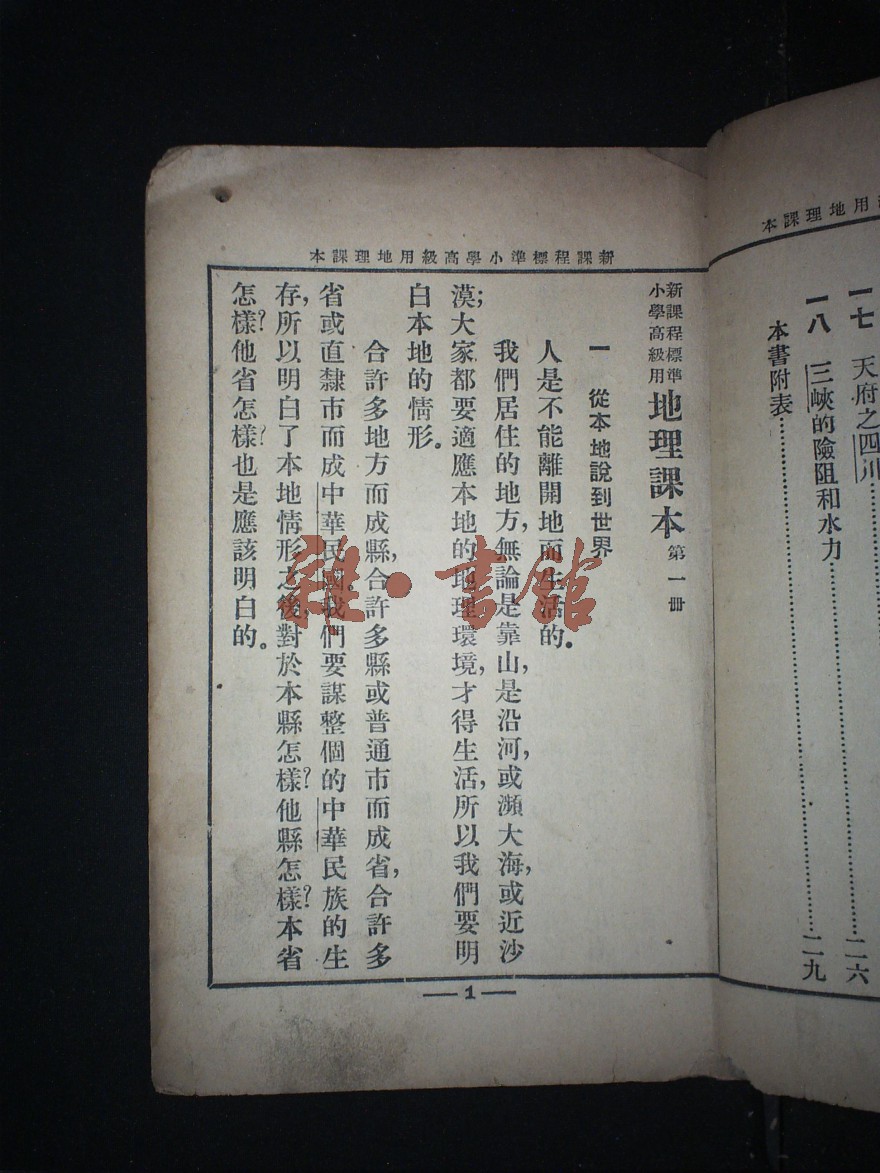 本課理地用
一七 天府之四川 二六
一八 三峽的險阻和水力 二九
本書附表
本課理地用級高學小準標程課新
新課程標準
小學高級用
地理課本 第一册
一 從本地說到世界
人是不能離開地而生活的。
我們居住的地方,無論是靠山,是沿河,或瀕大海,或近沙
漠;大家都要適應本地的地理環境,才得生活,所以我們要明
白本地的情形。
合許多地方而成縣,合許多縣或普通市而成省,合許多
省或直隸市而成中華民國。我們要謀整個的中華民族的生
存,所以明白了本地情形之後,對於本縣怎樣?他縣怎樣?本省
怎樣?他省怎樣?也是應該明白的。
1
雜·書館